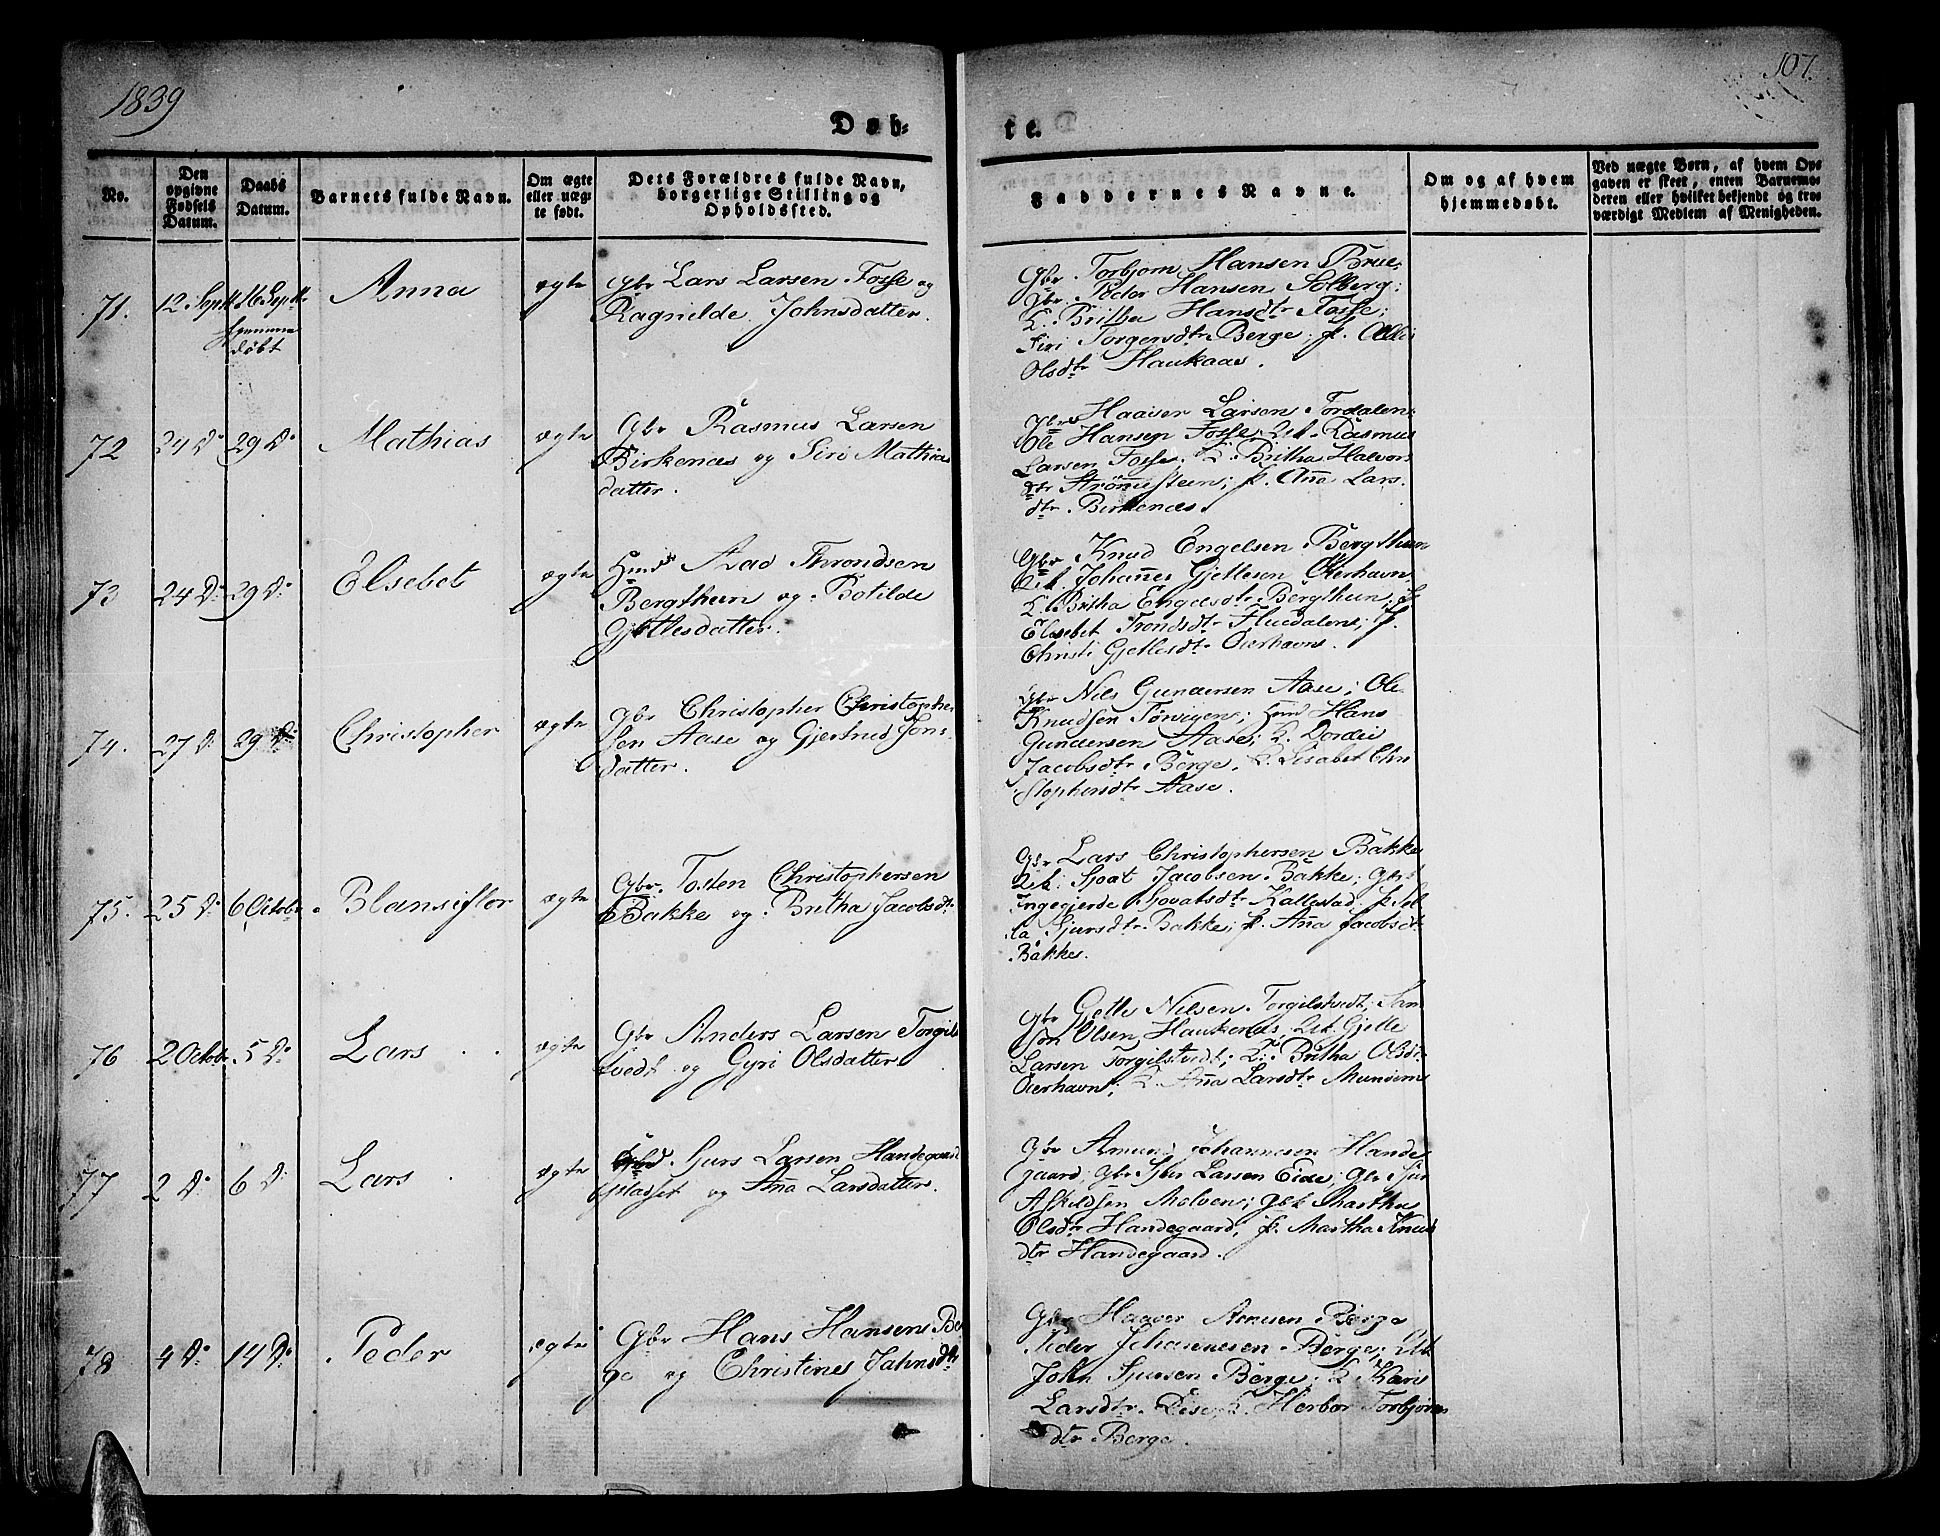 1839
107.
Døb-
te.
No.
Den opgivne Fødsels Datum.
Daabs Datum.
Barnets fulde Navn.
Om ægte eller uægte født.
Dets Forældres fulde Navn, borgerlige Stilling og Opholdssted.
Faddernes Navne.
Om og af hvem hjemmedøbt.
Ved uægte Børn, af hvem Opgaven er skeet, enten Barnemoderen eller hvilket bekjendt og troværdigt Medlem af Menigheden.
71.
12 Septb
16 Septbr
hjemme
døbt
Anna
ægte
Gbr Lars Larsen Fosse og
Ragnilde Johnsdatter.
Gbr Torbjørn Hansen Brue;
Gbr Peder Hansen Solberg;
K. Britha Hansdtr Fosse;
Siri Torgersdtr Berge; p.
Olsdtr Haukaas.
72
24 D
29 D
Mathias
ægte
Gbr Rasmus Larsen
Birkenæs og Siri Mathias
datter.
Larsen
Ole Hansen Fosse; Rasmus
Larsen Fosse. K. Britha Halvors
dtr Strømesteen; p. Anna Lars
dtr Birkenæs.
73
24 D
29 D
Elsebet
ægte
Huusmd Aad Throndsen
Bergthun og Botilde
Gjetlesdatter.
Gbr Knud Engelsen Bergthun
Johannes Gjetlesen Oterhavn
K. Britha Engelsdtr Bergthun; p
Elsebet Trondsdtr Fluedalen; p.
Christi Gjetlesdtr Oterhavn.
74.
27 D
29 D
Christopher
ægte
Gbr Christopher Christopher
sen Aase og Gjertrud Jons
datter.
Gbr Nils Gundersen Aase; Ole
Knudsen Tørvigen; Hans
Gundersen Aase; K. Dordei
Jacobsdtr Berge, K. Lisabet Chri
stophersdtr Aase.
75.
25 D
6 Octobr
Blansiflor
ægte
Gbr. Tosten Christophersen
Bakke og Britha Jacobsdtr
Gbr Lars Christophersen Bakke
Sjoat Jacobsen Bakke;
Ingegjerde Sjovatsdtr Kallestad, p.
Sjursdtr Bakke; p. Anna Jacobsdtr
Bakke.
76
2 Octobr
5 D
Lars
ægte
Gbr Anders Larsen Torgils
tvedt og Gyri Olsdatter
Gbr Gjetle Nilsen Torgilstvedt; Sam
son Olsen Haukenæs, Gjetle
Larsen Torgilstvedt; K. Britha Olsdtr
Oterhavn; K. Anna Larsdtr Mundem
77
2 D
6 D
Lars
ægte
Sjurs Larsen Handegaard
pladset og Anna Larsdatter.
Gbr Amund Johannesen Hande
gaard; Gbr Larsen Eide; Gbr Sjur
Askildsen Molven; Martha
Olsdtr Handegaard, p. Martha Knuds
dtr Handegaard.
78
4 D
14 D
Peder
ægte
Gbr Hans Hansen Ber
ge og Christine Jahnsdtr
Gbr Haaver Berge
Peder Johannesen Berge;
John Sjursen Berge; K Kari
Larsdtr K. Herbor Torbjørns
dtr Berge.